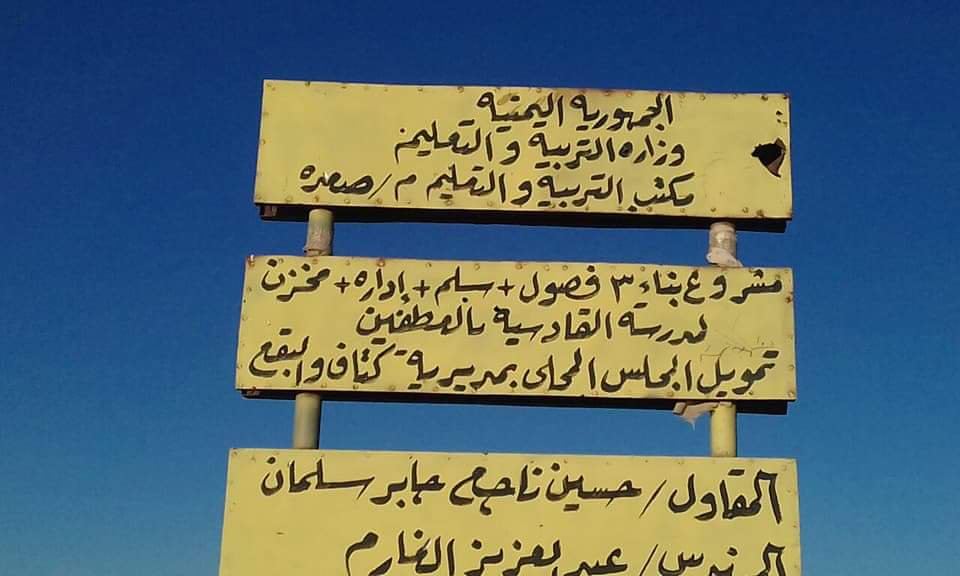 الجمهورية اليمنية
وزاره التربيه والتعليم
مكتب التربيه والتعليم م/صعده
مشروع بناء ٣ فصول + سلم + إداره + مخزن
لمدرسة القادسية بالعطفين
تمويل المجلس المحلى بمديرية كتاف والبقع
المقاول/ حسين ناجي جابر سلمان
المهندس/ عبدالعزيز الغارم